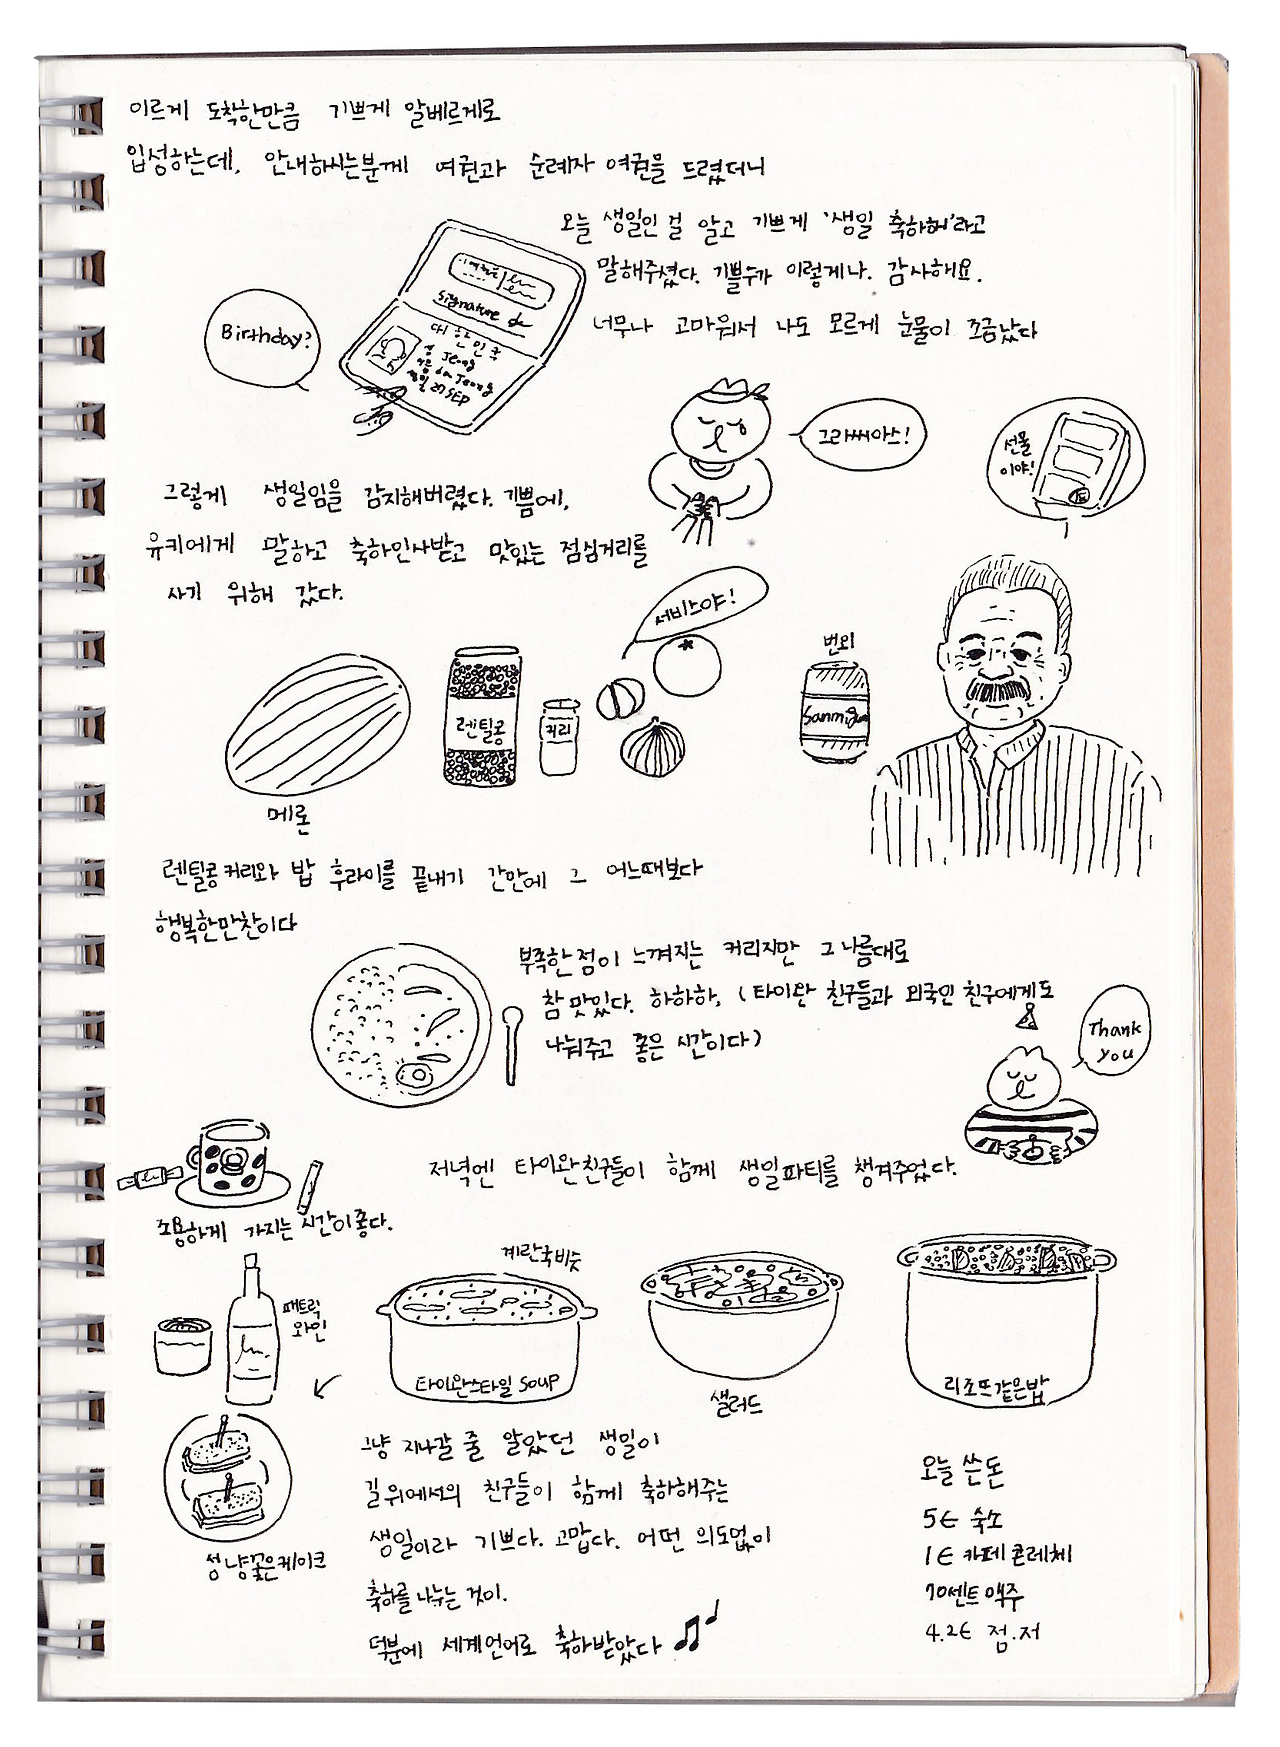 이르게 도착한만큼 기쁘게 알베르게로
입성하는데, 안내하시는분께 여권과 순례자 여권을 드렸더니
오늘 생일인 걸 알고 기쁘게 '생일 축하해'라고
말해주셨다. 기쁠수가 이렇게나. 감사해요.
너무나 고마워서 나도 모르게 눈물이 조금났다
Birthday?
Signature
대한민국
성 Jeong
27 SEP
그라씨아스!
선물
이야!
그렇게 생일임을 감지해버렸다. 기쁨에,
유키에게 말하고 축하인사받고 맛있는 점심거리를
사기 위해 갔다.
서비스야!
번외
Sanmig
렌틸콩
커리
메론
렌틸콩커리와 밥 후라이를 끝내기 간만에 그 어느때보다
행복한만찬이다
부족한점이 느껴지는 커리지만 그 나름대로
참 맛있다. 하하하, (타이완 친구들과 외국인 친구에게도
나눠주고 좋은 시간이다)
Thank
you
저녁엔 타이완친구들이 함께 생일파티를 챙겨주었다.
조용하게 가지는 시간이좋다.
계란국비슷
패트릭
와인
타이완스타일 Soup
샐러드
리조또같은밥
성냥꽂은케이크
그냥 지나갈 줄 알았던 생일이
길위에서의 친구들이 함께 축하해주는
생일이라 기쁘다. 고맙다. 어떤 의도없이
축하를 나누는 것이.
덕분에 세계언어로 축하받았다
오늘 쓴돈
5€ 숙소
1€ 카페콘레체
70센트 맥주
4.2€ 점.저